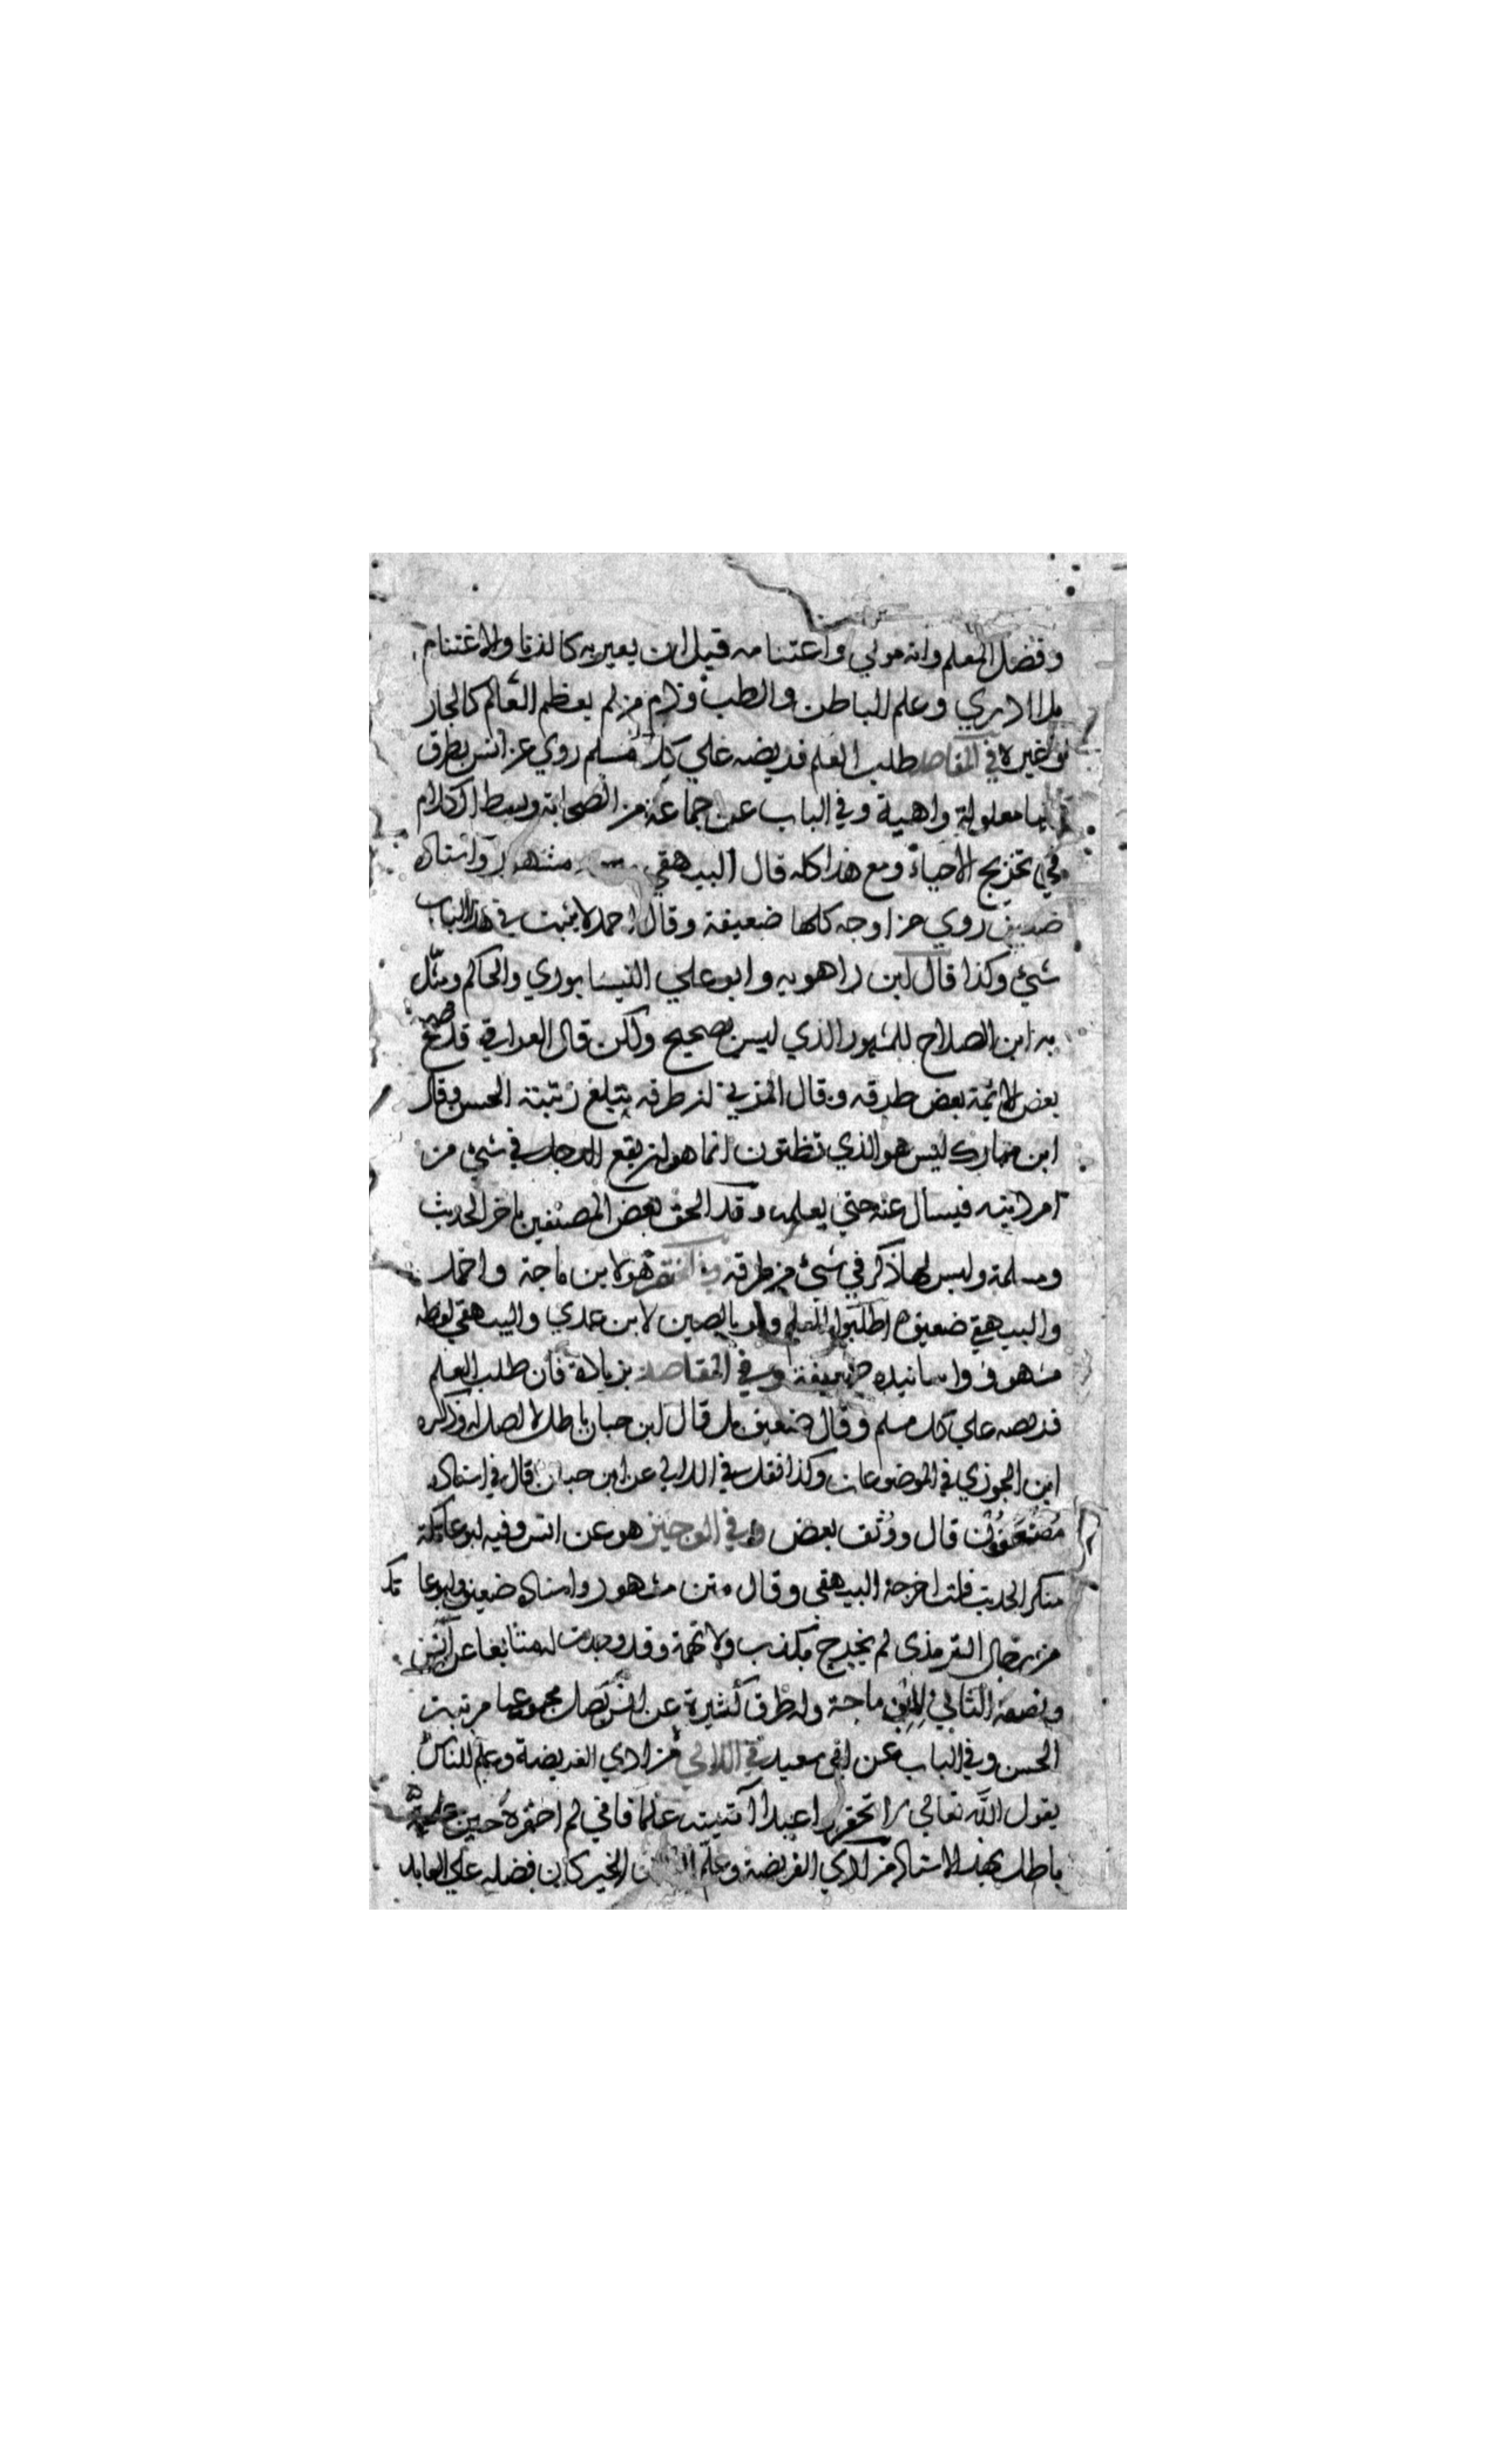 وفضل المعلم وانه مولي واغتنامه قبل ان يعير به كالزنا والاغتنام
بلا ادري وعلم الباطن والطب وذم من لم يعظم العالم كالجار
او غيره في المقاصد طلب العلم فريضه علي كل مسلم روي عن انس بطرق
كلها معلولة واهية وفي الباب عن جماعة من الصحابة وبسط الكلام
في تخريج الاحياء ومع هذا كله قال البيهقي مشهور واسناده
ضعيف روي من اوجه كلها ضعيفة وقال احمد لا يثبت في هذا الباب
شيء وكذا قال ابن راهويه وابو علي النيسابوري والحاكم ومثل
به ابن الصلاح للمشهور الذي ليس بصحيح ولكن قال العراقي قد صحح
بعض الائمة بعض طرقه وقال المزي ان طرقه تبلغ رتبة الحسن وقال
ابن مبارك ليس هو الذي تظنون انما هو ان يقع الرجل في شيء من
امر دينه فيسال عنه حتي يعلمه وقد الحق بعض المصنفين باخر الحديث
ومسلمة وليس لها ذكر في شيء من طرقه في المختصر هو لابن ماجة واحمد
والبيهقي ضعيف اطلبوا العلم ولو بالصين لابن عدي والبيهقي لفظه
مشهور واسانيده ضعيفة وفي المقاصد بزيادة فان طلب العلم
فريضه علي كل مسلم وقال ضعيف بل قال ابن حبان باطل لا اصل له وذكره
ابن الجوزي في الموضوعات وكذا نقل في اللالي عن ابن حبان قال في اسناده
مضعفون قال ووثق بعض وفي الوجيز هو عن انس وفيه ابو عاتكة
منكر الحديث قلت اخرجه البيهقي وقال متن مشهور واسناده ضعيف وابو عا تكة
من رجال الترمذي لم يجرح بكذب ولا تهمة وقد وجدت له متابعا عن انس
ونصفه الثاني لابن ماجة وله طرق كثيرة عن انس يصل مجموعها مرتبة
الحسن وفي الباب عن ابي سعيد في اللالي من ادي الفريضة وعلم الناس
يقول الله تعالي لا تحقروا عبدا آتيته علما فاني لم احقره حين علمته
باطل بهذا الاسناد من ادي الفريضة وعلم الناس الخير كان فضله علي العابد